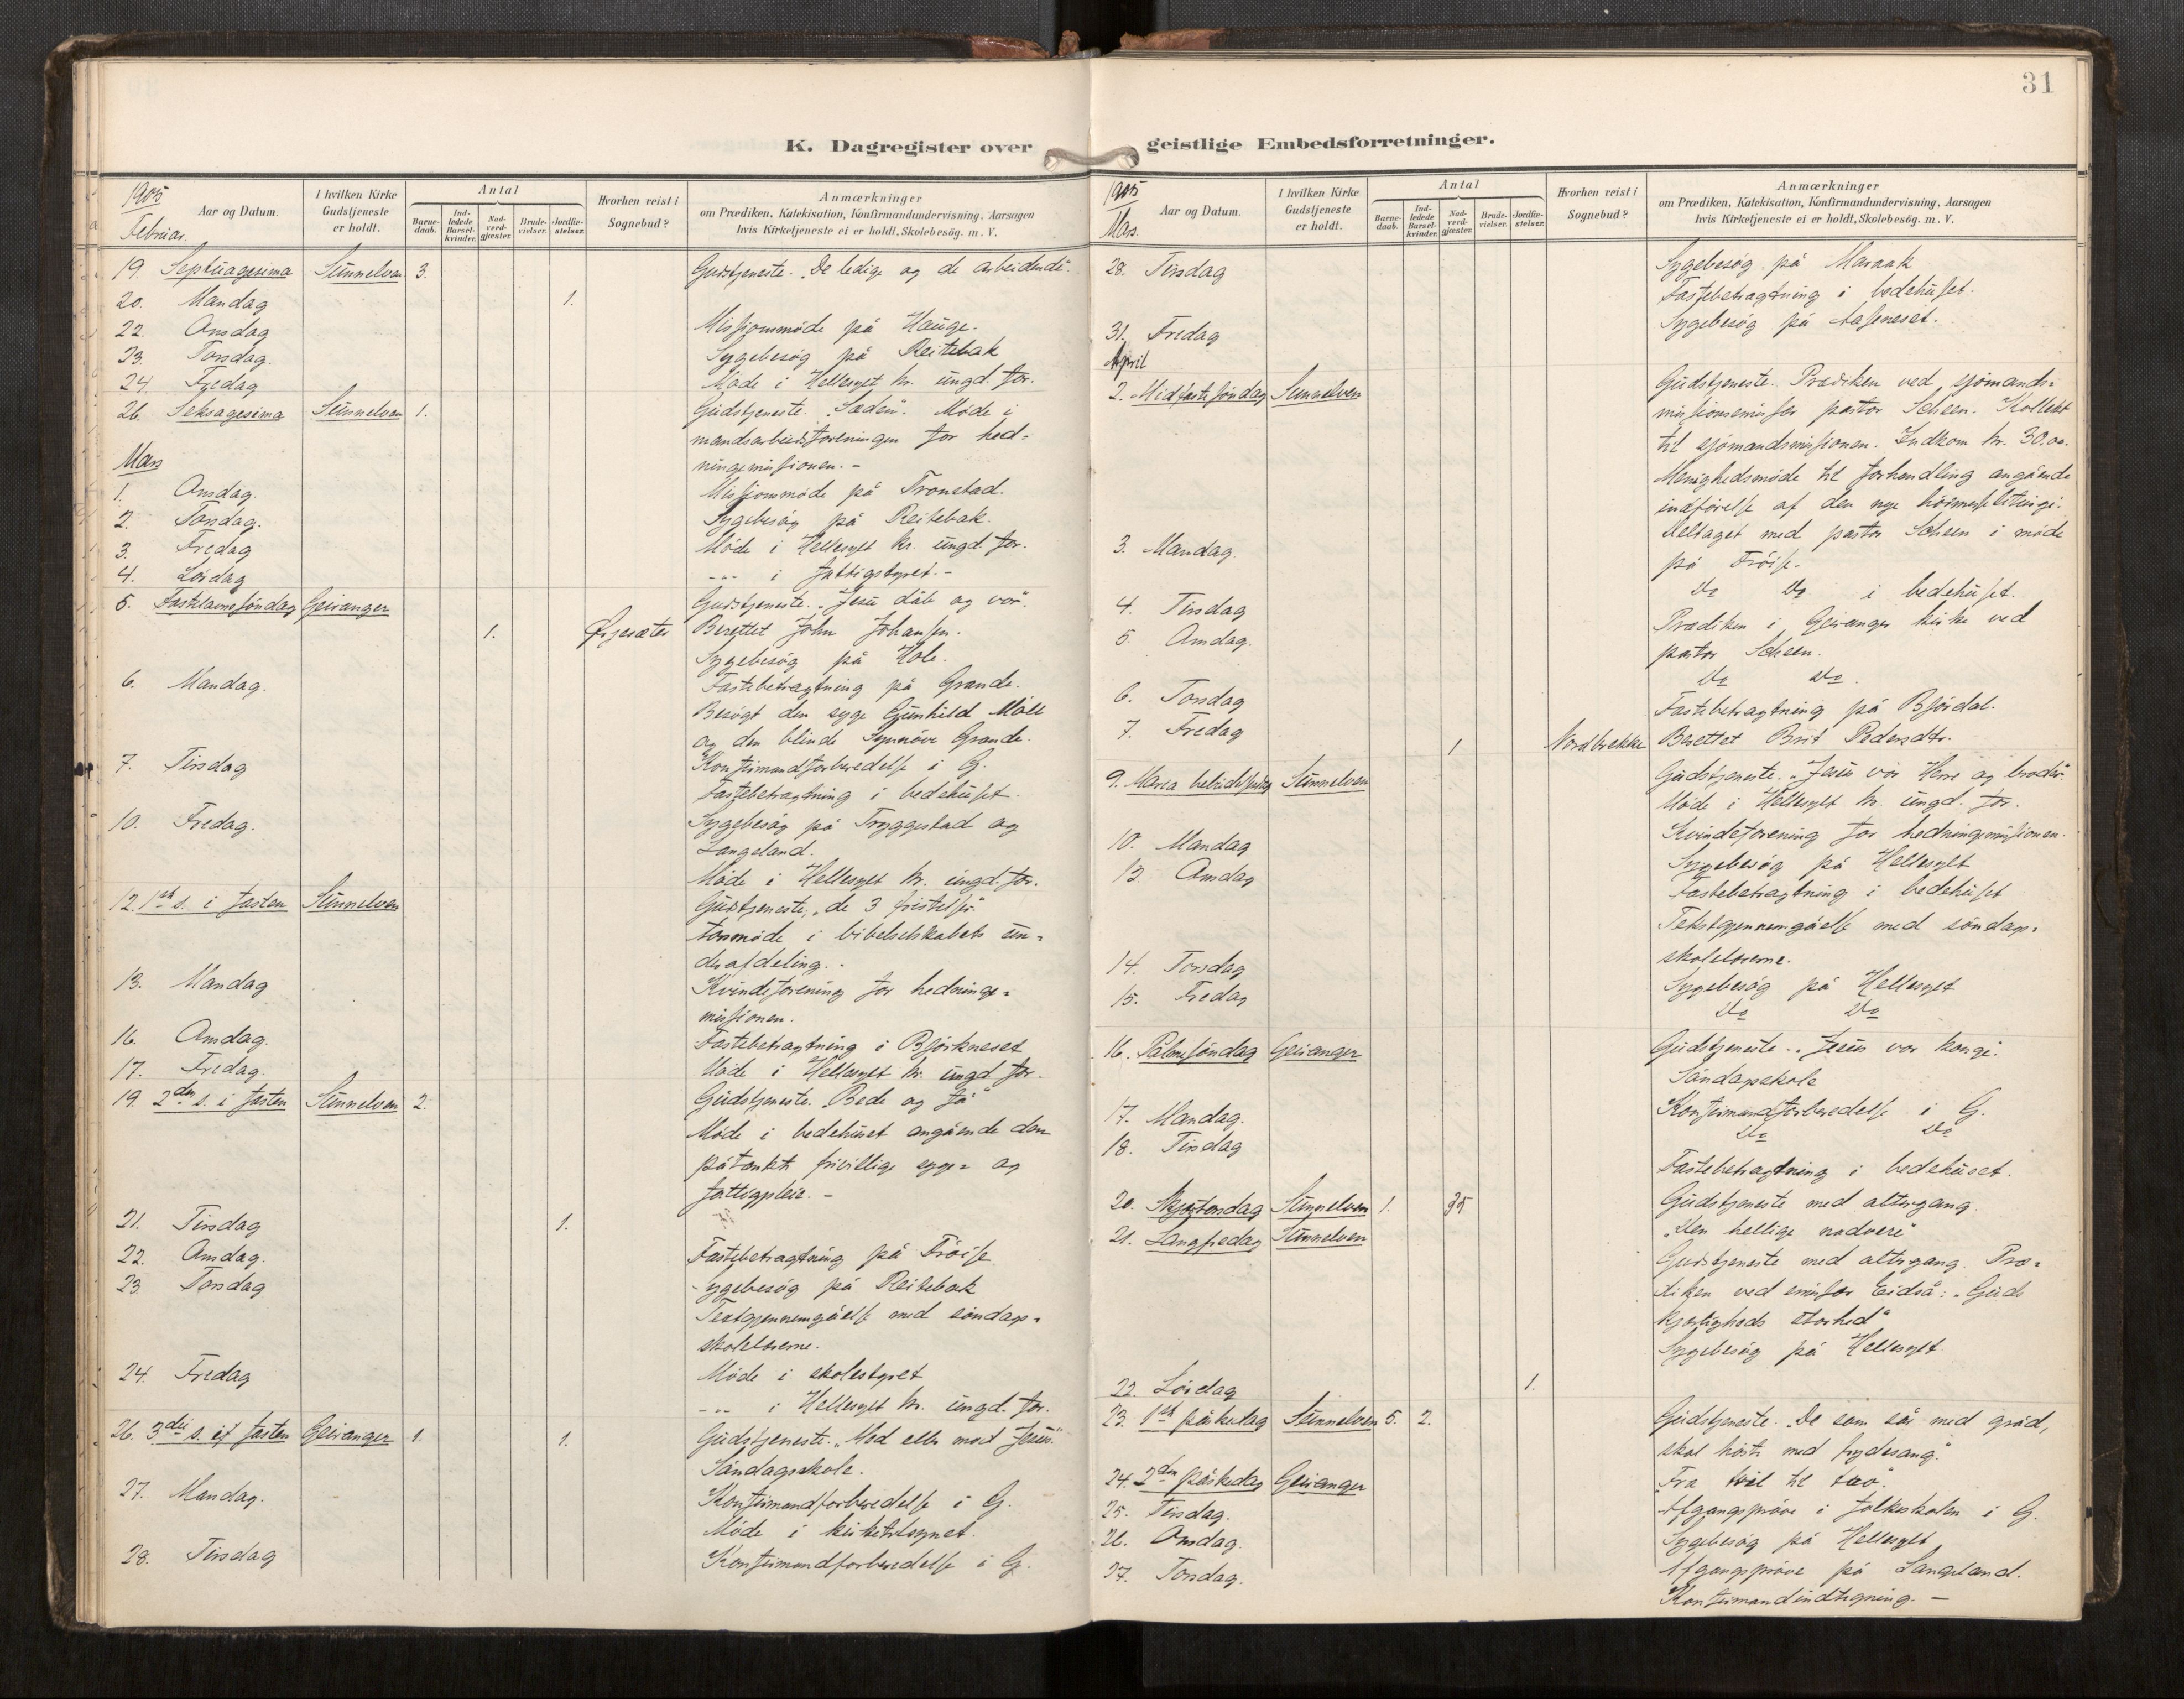 31
K. Dagregister over geistlige Embedsforretninger.
1905
Februar.
Aar og Datum.
I hvilken Kirke Gudstjeneste er holdt.
Antal
Barne-daab.
Ind-ledede Barsel-kvinder.
Nad-verd-gjæster.
Brude-vielser.
Jordfæ-stelser.
Hvorhen reist i Sognebud?
Anmærkninger
om Prædiken, Katekisation, Konfirmandundervisning, Aarsagen
hvis Kirketjeneste ei er holdt, Skolebesøg. m. V.
19. Septuagesima Sunnelven 3. Gudstjeneste. "De ledige og de arbeidende".
20. Mandag 1.
22. Onsdag Missionsmøde på Hauge.
23. Torsdag. Sygebesøg på Reitebak
24. Fredag Møde i Hellesylt kr. ungd. for.
26. Seksagesima Sunnelven 1. Gudstjeneste. "Sæden". Møde i
mandsarbeidsforeningen for hed-
ningemissionen. -
Mars
1. Onsdag. Missionsmøde på Tronstad.
2. Torsdag. Sygebesøg på Reitebak.
3. Fredag Møde i Hellesylt kr. ungd. for.
4. Lördag -"- i fattigstyret. -
5. Fastelavnssöndag Geiranger Gudstjeneste. "Jesu dåb og vor".
1. Ørjesæter Berettet John Johansen.
Sygebesøg på Hole.
6. Mandag. Fastebetragtning på Grande.
Besøgt den syge Gunhild Måll
og den blinde Synnöve Grande.
7. Tirsdag Konfirmandforberedelse i G.
Fastebetragtning i bedehuset.
10. Fredag. Sygebesøg på Tryggestad og
Langeland.
Møde i Hellesylt kr. ungd. for.
12. 1ste s. i fasten Sunnelven Gudstjeneste, "de 3 fristelser".
Årsmøde i bibelselskabets un-
derafdeling. -
13. Mandag Kvindeforening for hedninge-
missionen.
16. Onsdag. Fastebetragtning i Bjørkneset
17. Fredag. Møde i Hellesylt kr. ungd. for.
19. 2den s. i fasten Sunnelven 2. Gudstjeneste. "Bede og få"
Møde i bedehuset angående den
påtænkte frivillige syge- og
fattigpleie. -
21. Tirsdag 1.
22. Onsdag. Fastebetragtning på Fröise
23. Torsdag Sygebesøg på Reitebak
Textgjennemgåelse med söndags-
skolelærerne.
24. Fredag Møde i skolestyret
-"- i Hellesylt kr. ungd. for.
26. 3die s. i fasten Geiranger 1. 1. Gudstjeneste. "Med eller mod Jesus."
Söndagsskole.
27. Mandag. Konfirmandforberedelse i G.
Møde i kirketilsynet.
28. Tirsdag Konfirmandforberedelse i G.
1905
Mars.
Aar og Datum.
I hvilken Kirke Gudstjeneste er holdt.
Antal
Barne-daab.
Ind-ledede Barsel-kvinder.
Nad-verd-gjæster.
Brude-vielser.
Jordfæ-stelser.
Hvorhen reist i Sognebud?
Anmærkninger
om Prædiken, Katekisation, Konfirmandundervisning, Aarsagen
hvis Kirketjeneste ei er holdt, Skolebesøg. m. V.
28. Tirsdag Sygebesøg på Maraak
Fastebetragtning i bedehuset.
31. Fredag Sygebesøg på
April
2. Midfastesöndag Sunnelven Gudstjeneste. Prædiken ved sjömands-
missionsemissær pastor Scheen. Kollekt
til sjömandsmissionen. Indkom kr. 30.00.
Menighedsmøde til forhandling angående
indførelse af den nye höimesseliturgi.
3. Mandag. Deltaget med pastor Scheen i møde
på Fröise.
4. Tirsdag Do Do i bedehuset.
5. Onsdag. Prædiken i Geiranger kirke ved
pastor Scheen.
6. Torsdag Do Do.
7. Fredag Fastebetragtning på Björdal.
1 Nordbrekke Berettet Brit Pedersdtr.
9. Maria bebudelsesdag Sunnelven Gudstjeneste. "Jesus vor Herre og broder".
Møde i Hellesylt kr. ungd. for.
10. Mandag Kvindeforening for hedningemissionen.
12. Onsdag Sygebesøg på Hellesylt
Fastebetragtning i bedehuset
Tekstgjennemgåelse med söndags-
skolelærerne.
14. Torsdag Sygebesøg på Hellesylt
15. Fredag Do Do
16. Palmesöndag Geiranger Gudstjeneste. "Jesus vor konge".
Söndagsskole
17. Mandag. Konfirmandforberedelse i G.
18. Tirsdag Do Do
Fastebetragtning i bedehuset.
20. Skjærtorsdag Sunnelven 1. 35 Gudstjeneste med altergang.
"Den hellige nadvere"
21. Langfredag Sunnelven Gudstjeneste med altergang. Præ-
diken ved emissær Eidså: "Guds
kjærligheds storhed"
Sygebesøg på Hellesylt.
22. Lördag 1.
23. 1ste påskedag Sunnelven 5. 2. Gudstjeneste. "De som sår med gråd,
skal höste med frydesang."
24. 2den påskedag Geiranger "Fra tvil til tro".
25. Tirsdag. Afgangspröve i folkeskolen i G.
26. Onsdag. Sygebesøg på Hellesylt
27. Torsdag. Afgangspröve på Langeland.
Konfirmandindtegning. -